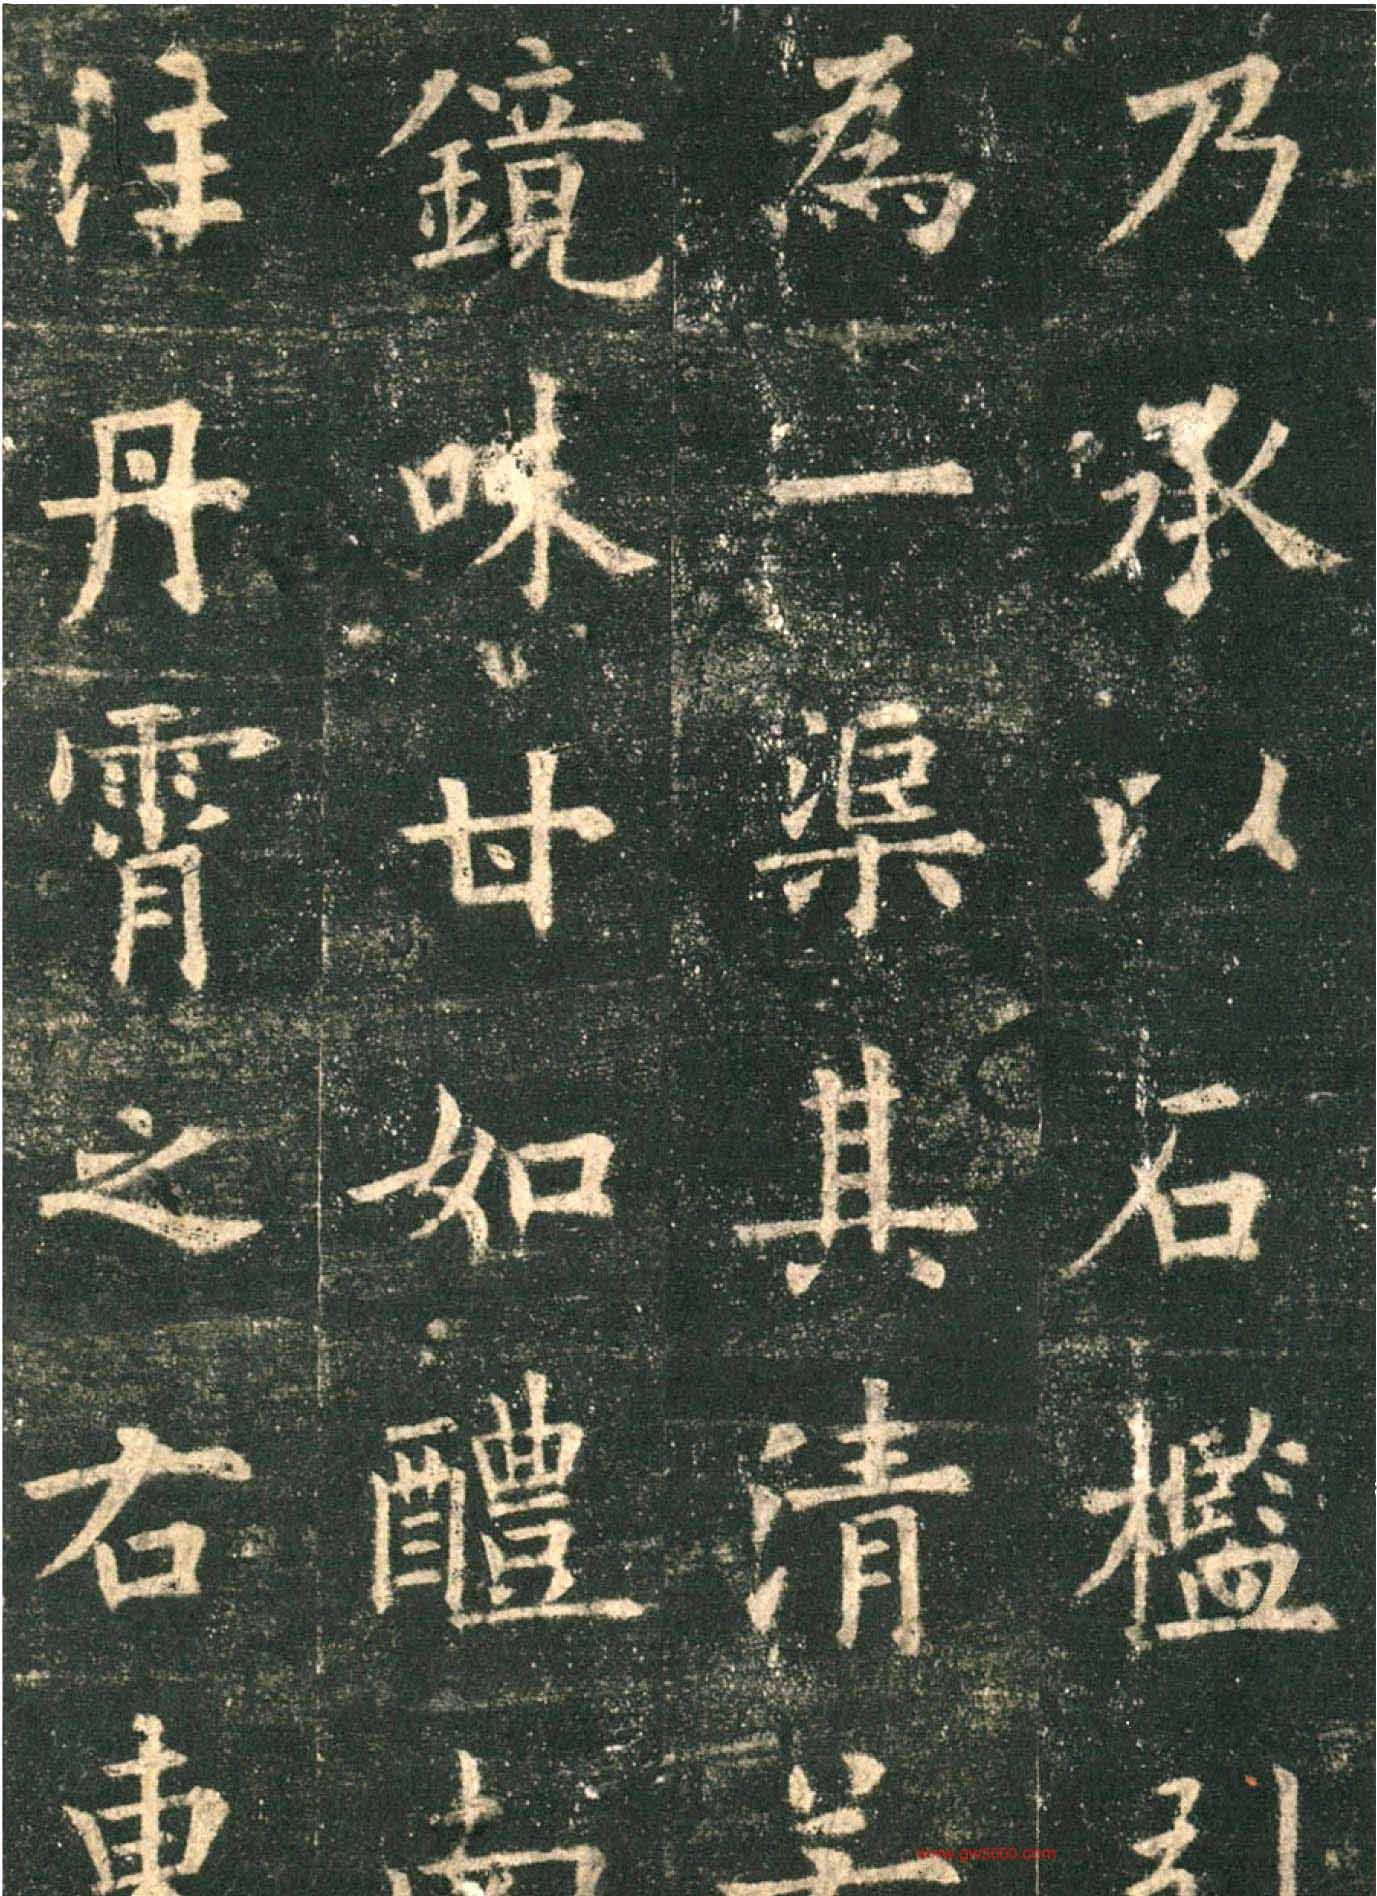 乃承以石檻引
為一渠其清若
鏡味甘如醴南
注丹霄之右東
www.gw5600.com